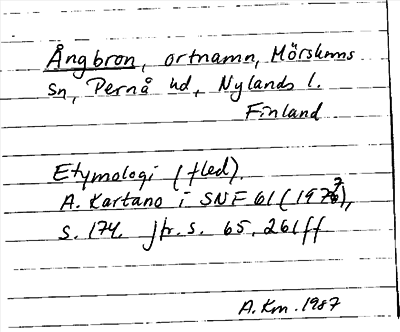 Ångbron, ortnamn, Mörskoms
sn, Pernå hd, Nylands l.
Finland
Etymologi (fled).
A. Kartano i SNF 61 (1973),
s. 174. Jfr. s. 65, 261 ff
A. Km. 1987